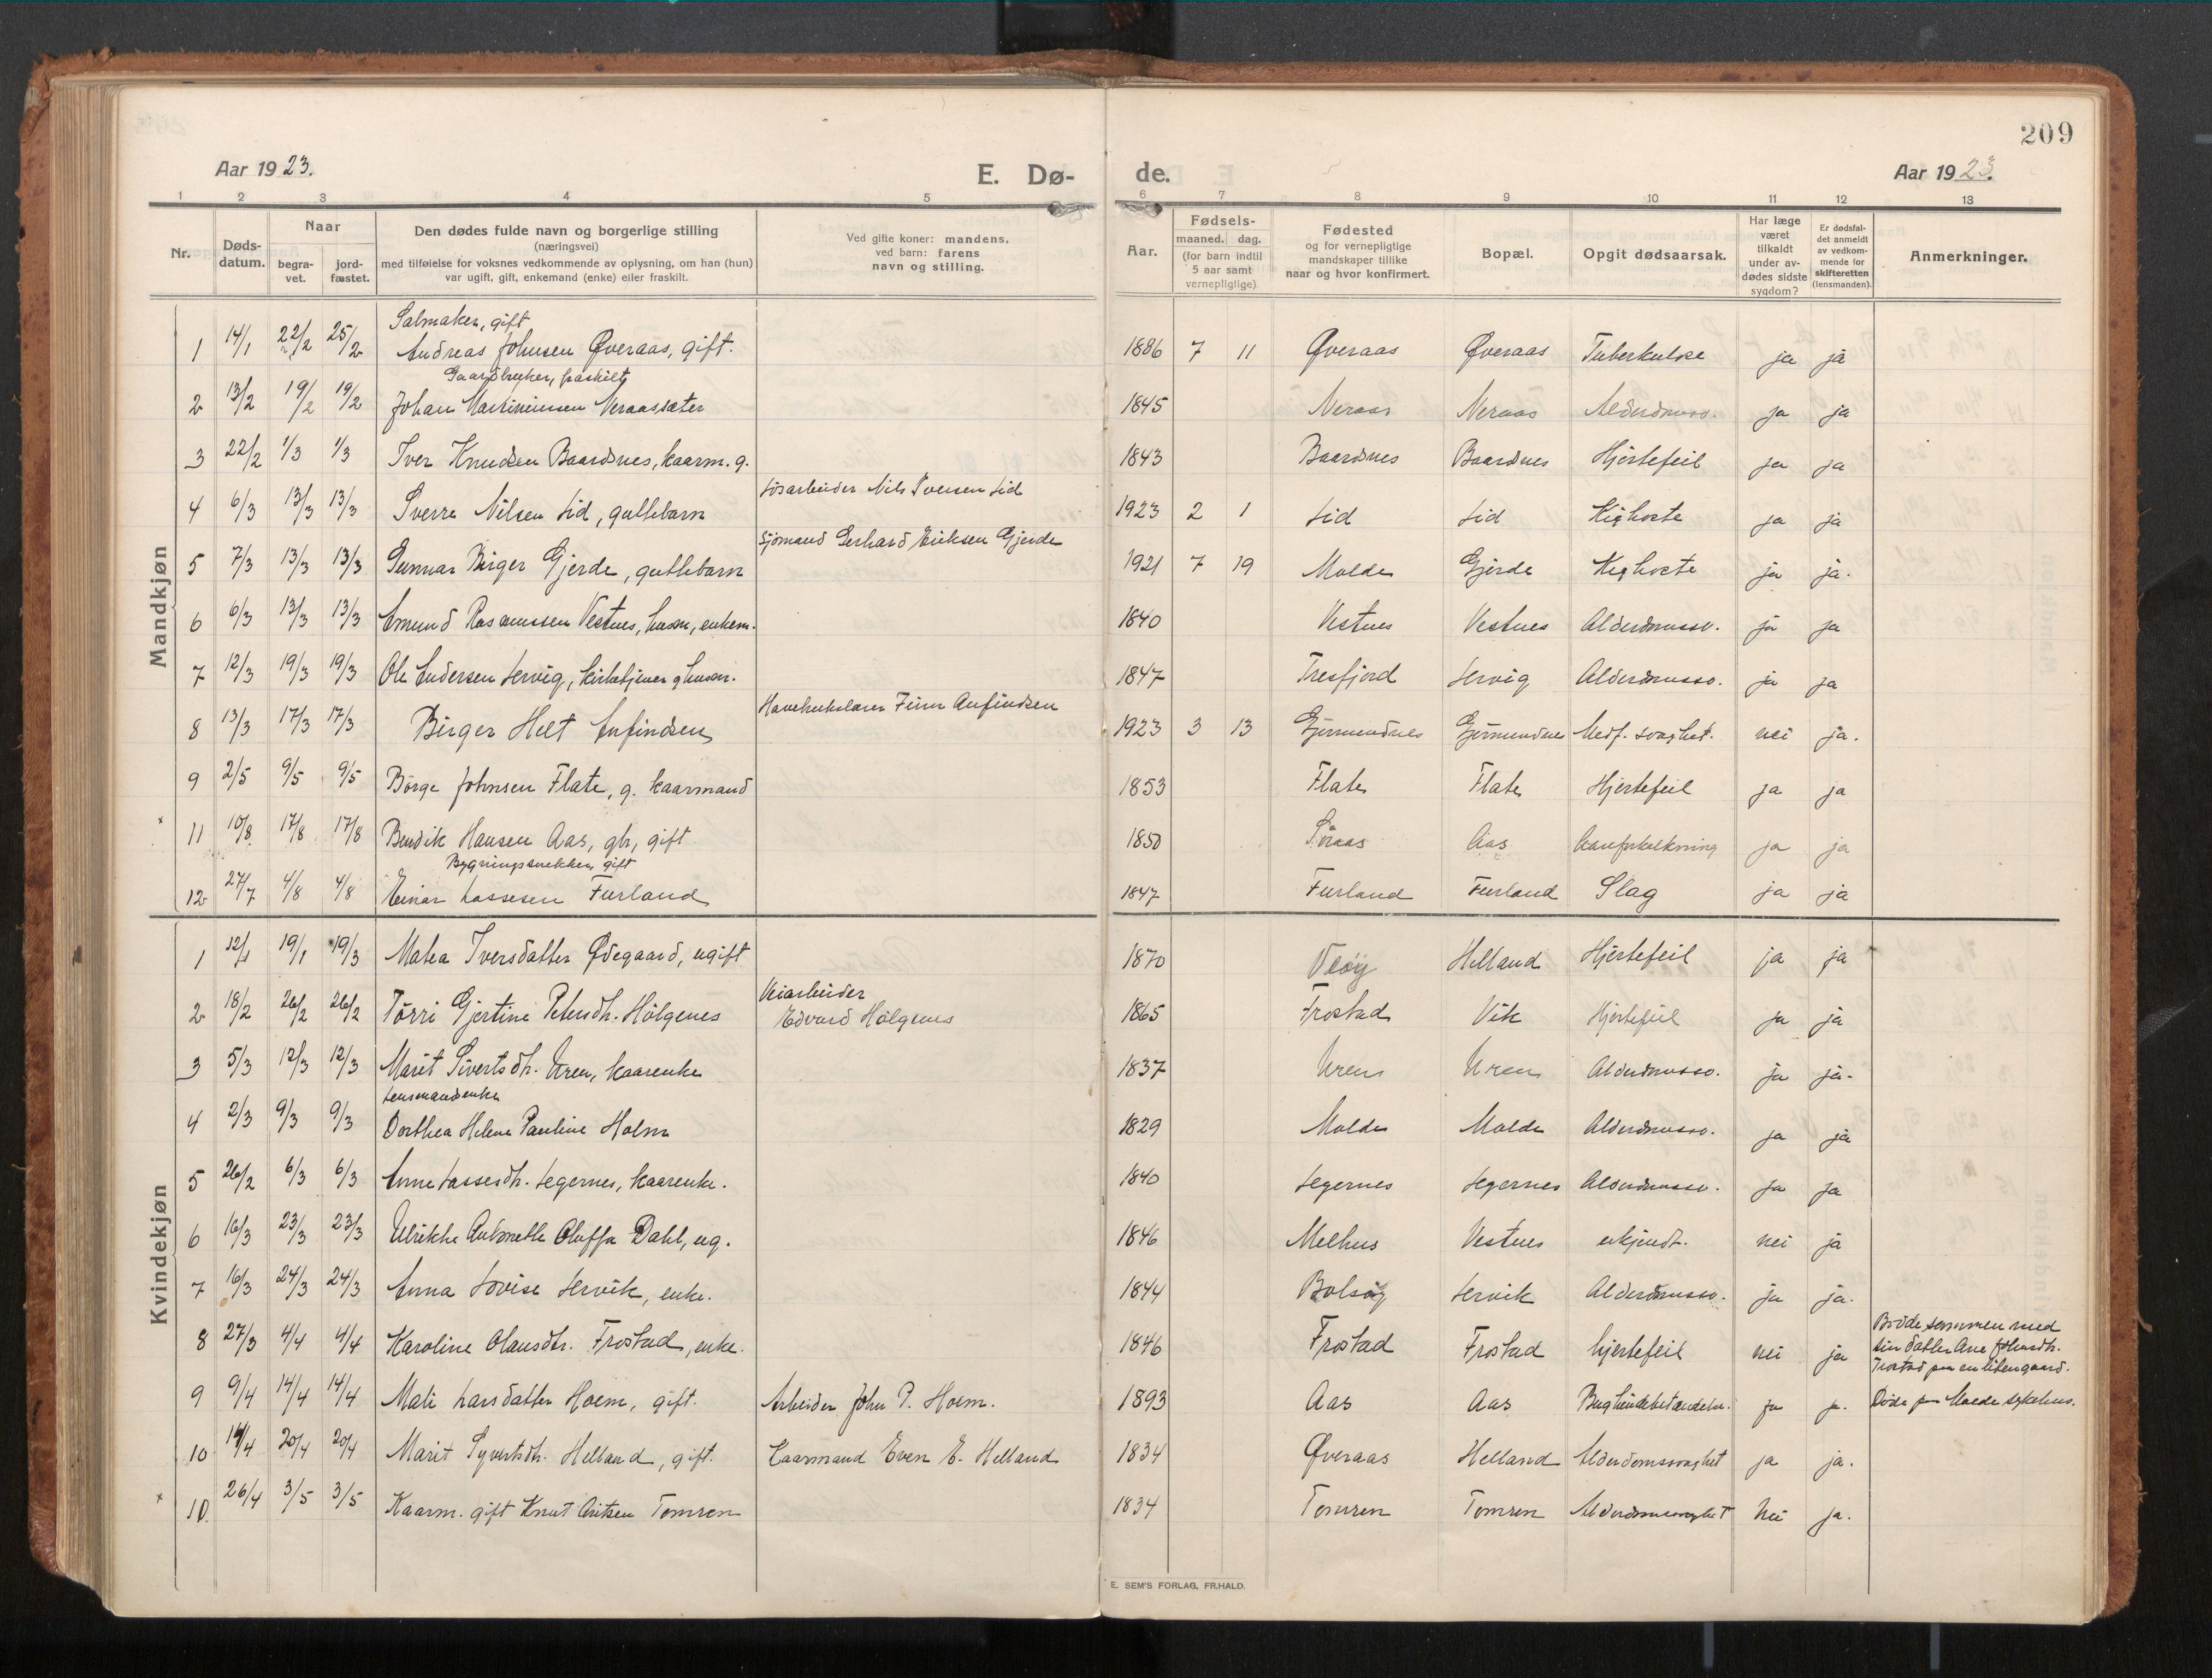 209
Aar 1923. E. Dø- de. Aar 1923.
1 2 3 4 5 6 7 8 9 10 11 12 13
Nr. Døds-datum. Naar begra-vet. jord-fæstet. Den dødes fulde navn og borgerlige stilling (næringsvei) med tilføielse for voksnes vedkommende av oplysning, om han (hun) var ugift, gift, enkemand (enke) eller fraskilt. Ved gifte koner: mandens, ved barn: farens navn og stilling. Aar. Fødsels- maaned. dag. (for barn indtil 5 aar samt vernepligtige) Fødested og for vernepligtige mandskaper tillike naar og hvor konfirmert. Bopæl. Opgit dødsaarsak. Har læge været tilkaldt under av-dødes sidste sygdom? Er dødsfal-det anmeldt av vedkom-mende for skifteretten (lensmanden). Anmerkninger.
Mandkjøn
Salmaker, gift
1 14/1 22/2 25/2 Andreas Johnsen Øveraas, gift. 1886 7 11 Øveraas Øveraas Tuberkulose ja ja
Gaardbruker, fraskilt
2 13/2 19/2 19/2 Johan Martiniussen Neraassæter 1845 Neraas Neraas Alderdomssv. ja ja
3 22/2 1/3 1/3 Iver Knudsen Baardsnes, kaarm. g. 1843 Baardsnes Baardsnes Hjertefeil ja ja
4 6/3 13/3 13/3 Sverre Nilsen Lid, guttebarn Løsarbeider Nils Iversen Lid 1923 2 1 Lid Lid Kighoste ja ja
5 7/3 13/3 13/3 Gunnar Birger Gjerde, guttebarn Sjømand Gerhard Eriksen Gjerde 1921 7 19 Molde Gjerde Kighoste ja ja.
6 6/3 13/3 13/3 Emund Rasmussen Vestnes, husm, enkem. 1840 Vestnes Vestnes Alderdomssv. ja ja
7 12/3 19/3 19/3 Ole Endersen Lervig, kirketjener g husm. 1847 Tresfjord Lervig Alderdomssv. ja ja
8 13/3 17/3 17/3 Birger Helt Anfindsen Havebrukslærer Finn Anfindsen 1923 3 13 Gjermundnes Gjermundnes Medf. svaghet. nei ja.
9 2/5 9/5 9/5 Børge Johnsen Flate, g. kaarmand 1853 Flate Flate Hjertefeil ja ja
11 10/8 17/8 17/8 Bendik Hansen Aas, gbr, gift 1850 Aas Aareforkalkning ja ja
Bygningssnekker, gift
12 27/7 4/8 4/8 Einar Lassesen Furland 1847 Furland Furland Slag ja ja
Kvindekjøn
1 12/1 19/1 19/3 Matea Iversdatter Ødegaard, ugift 1870 Veøy Helland Hjertefeil ja ja
Veiarbeider
2 18/2 26/2 26/2 Tørri Gjertine Petersdtr. Holgenes Edvard Holgenes 1865 Frostad Vik Hjertefeil ja ja
3 5/3 12/3 12/3 Marit Sivertsdtr. Uren, kaarenke 1837 Uren Uren Alderdomssv. ja ja.
Lensmandsenke
4 2/3 9/3 9/3 Dorthea Helene Pauline Holm 1829 Molde Molde Alderdomssv. ja ja
5 26/2 6/3 6/3 Anne Lassesdtr. Legernes, kaarenke. 1840 Legernes Legernes Alderdomssv. ja ja
6 16/3 23/3 23/3 Ulrikke Antonette Oluffa Dahl, ug. 1846 Melhus Vestnes ukjendt. nei ja
7 16/3 24/3 24/3 Anna Lovise Lervik, enke. 1844 Bolsøy Lervik Alderdomssv. ja ja.
8 27/3 4/4 4/4 Karoline Olausdtr. Frostad, enke. 1846 Frostad Frostad hjertefeil nei ja Bodde sammen med
sin datter Ane Johnsdtr.
Frostad paa en liten gaard.
9 9/4 14/4 14/4 Mali Larsdatter Hoem, gift. Arbeider John P. Hoem. 1893 Aas Aas Bughindebetændelse. ja ja. Døde paa Molde sykehus.
10 14/4 20/4 20/4 Marit Syvertsdtr. Helland, gift. Kaarmand Even E. Helland 1834 Øveraas Helland Alderdomssvaghet ja ja.
10 26/4 3/5 3/5 Kaarm. gift Knut Tomren 1834 Tomren Tomren Alderdomssvaghet Nei ja.
E. SEM'S FORLAG, FR.HALD.